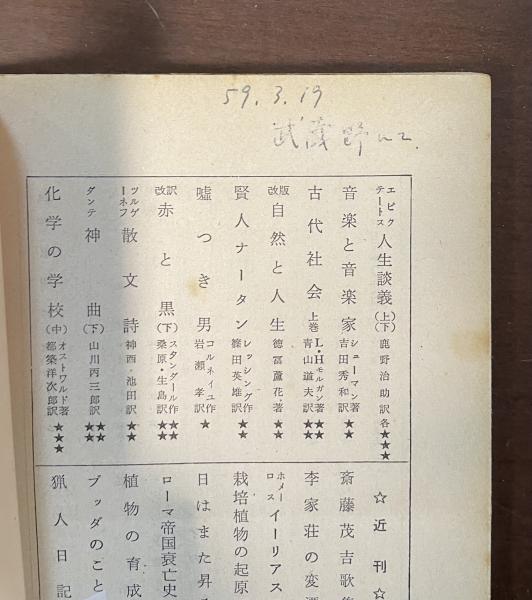 59.3.19
武蔵野にて.
エピクテートス 人生談義(上)(下) 鹿野治助訳 各★★★
音楽と音楽家 シューマン著 吉田秀和訳 ★
古代社会 上巻 L・Hモルガン著 青山道夫訳 ★★★★
改版 自然と人生 徳冨蘆花著 ★★
賢人ナータン レッシング作 篠田英雄訳 ★★
嘘つき男 コルネイユ作 岩瀬孝訳 ★
改訳 赤と黒(下) スタンダール作 桑原・生島訳 ★★★★
ツルゲーネフ 散文詩 神西・池田訳 ★★
ダンテ 神曲(下) 山川丙三郎訳 ★★★★
化学の学校(中) オストワルド著 都築洋次郎訳 ★★★
☆近刊☆
斎藤茂吉歌
李家荘の変
ホメーロス イーリアス
栽培植物の起原
日はまた昇
ローマ帝国衰亡史
植物の育成
ブッダのこと
猟人日記